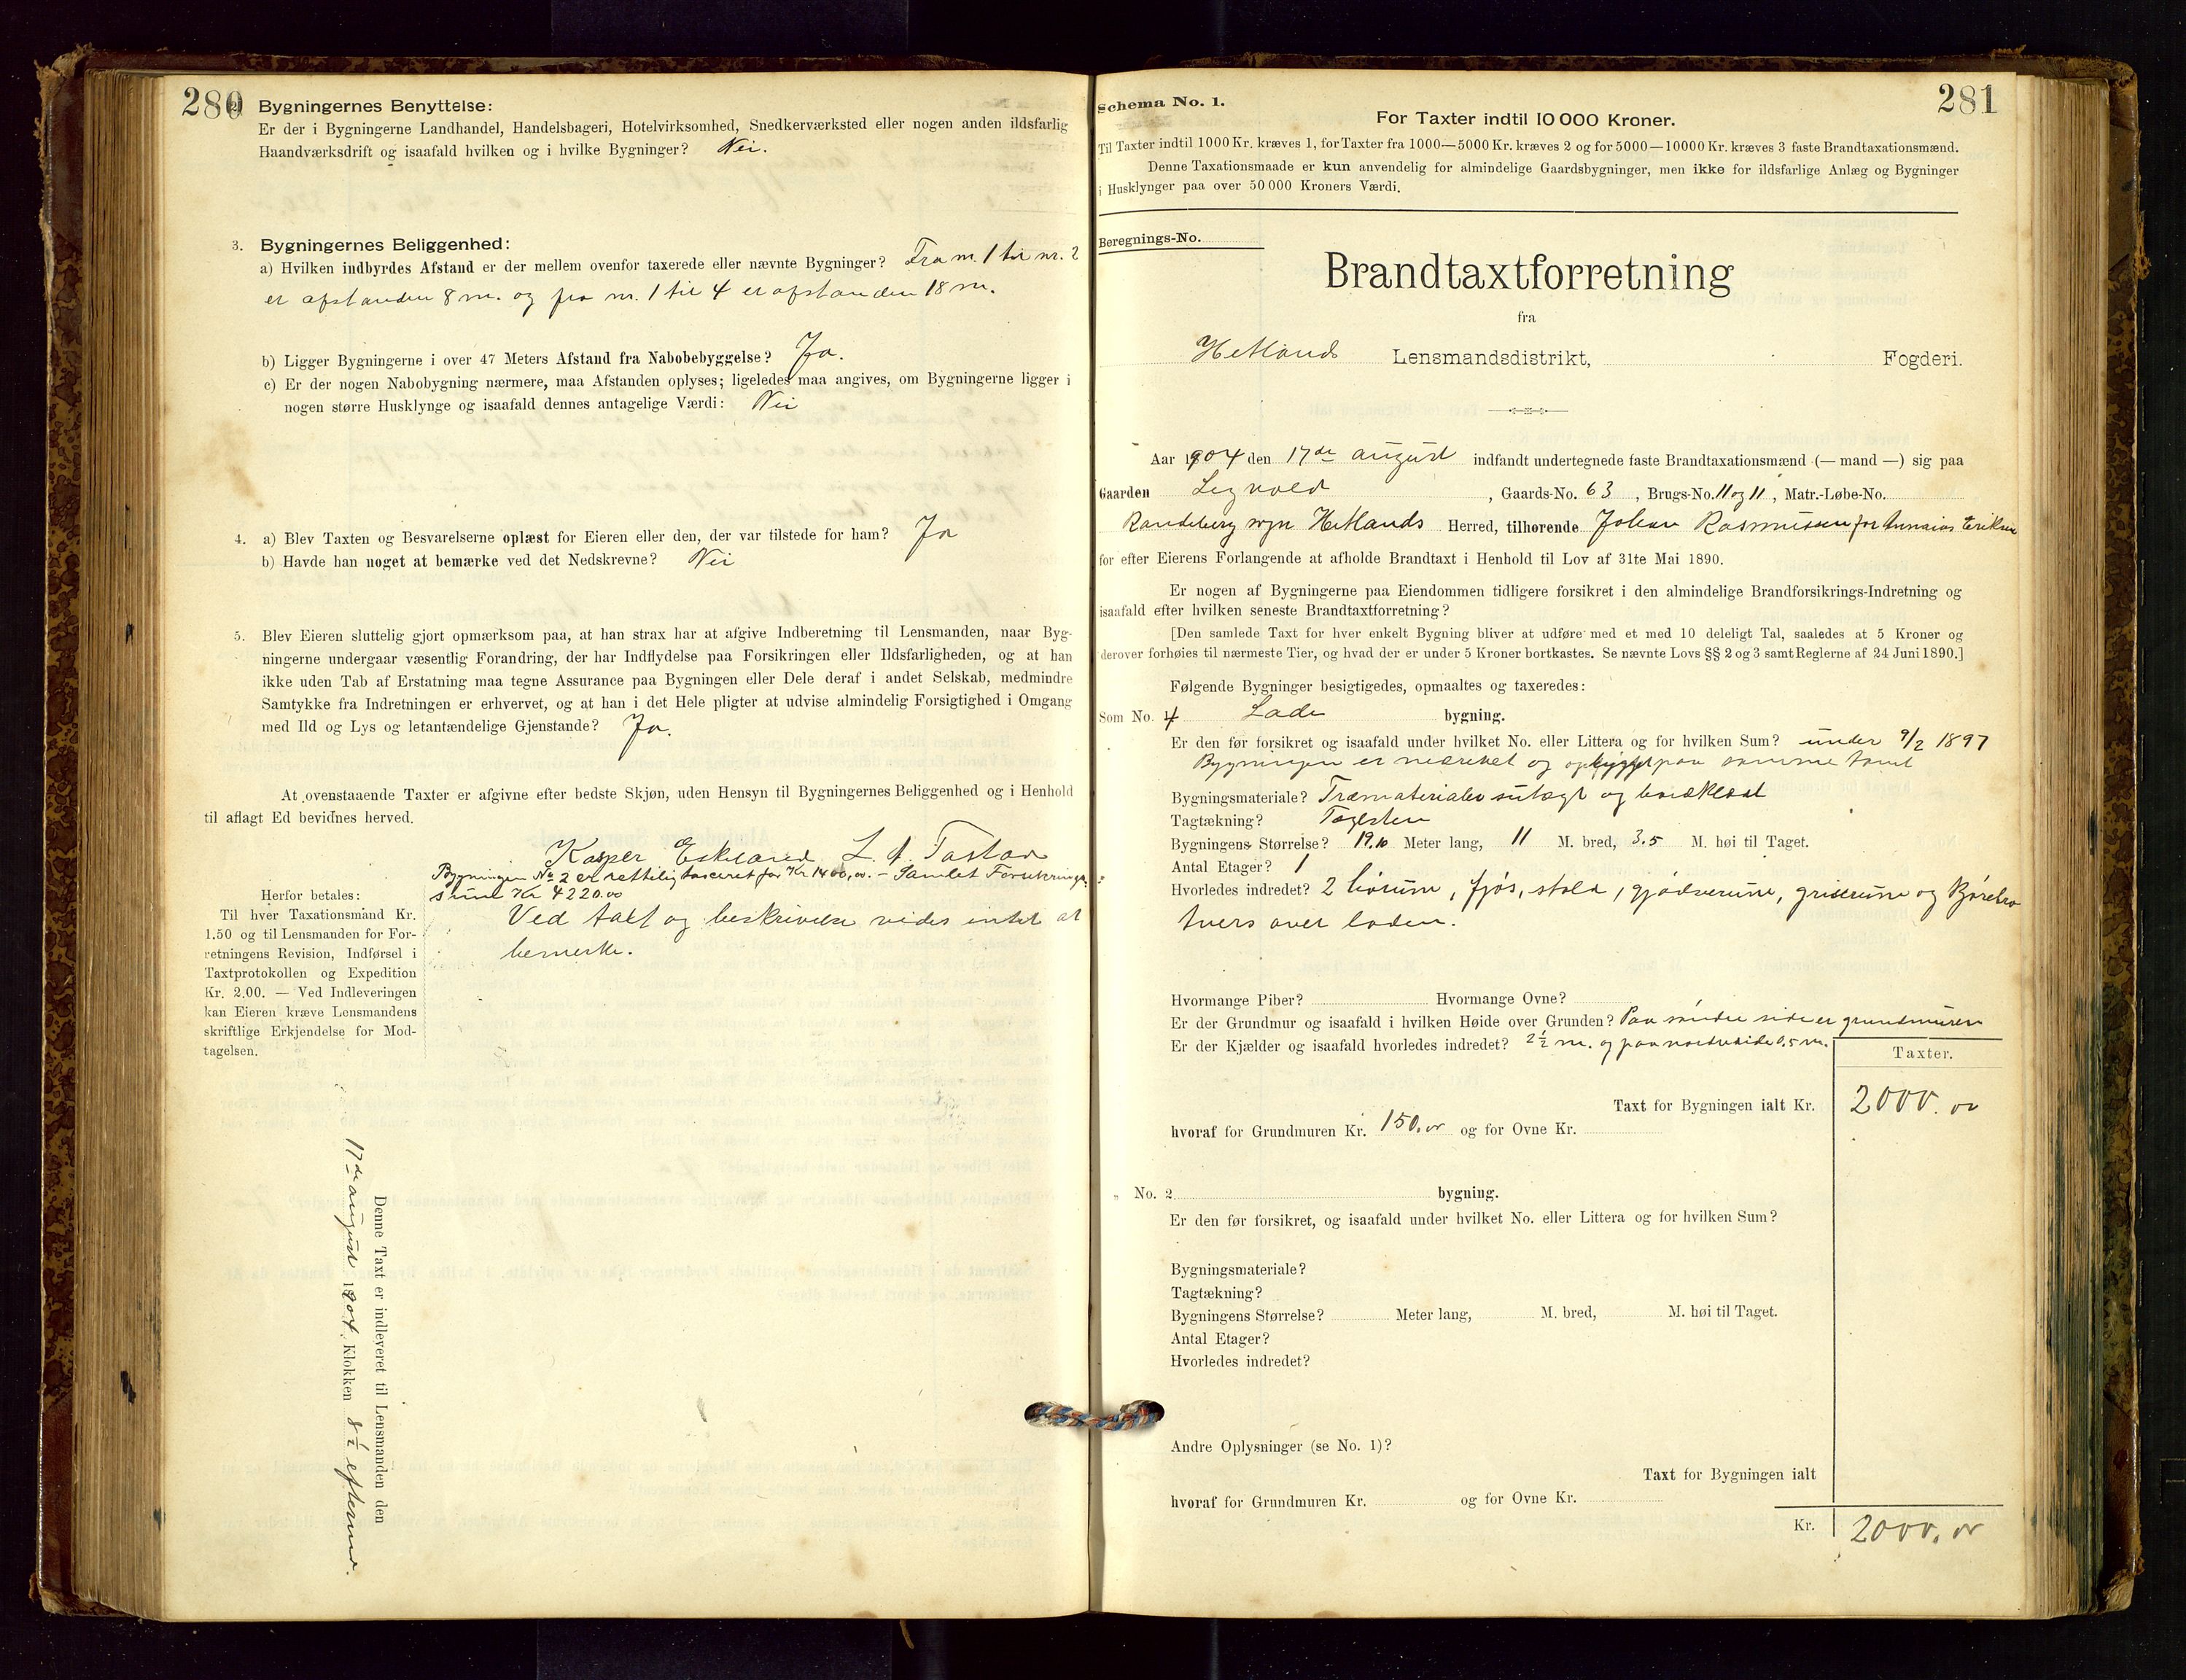 280
2. Bygningernes Benyttelse:
Er der i Bygningerne Landhandel, Handelsbageri, Hotelvirksomhed, Snedkerværksted eller nogen anden ildsfarlig
Haandværksdrift og isaafald hvilken og i hvilke Bygninger? Nei.
3. Bygningernes Beliggenhed:
a) Hvilken indbyrdes Afstand er der mellem ovenfor taxerede eller nævnte Bygninger? Fra nr. 1 til nr. 2
er afstanden 8 m. og fra nr. 1 til 4 er afstanden 18 m.
b) Ligger Bygningerne i over 47 Meters Afstand fra Nabobebyggelse? Ja.
c) Er der nogen Nabobygning nærmere, maa Afstanden oplyses; ligeledes maa angives, om Bygningerne ligger i
nogen større Husklynge og isaafald dennes antagelige Værdi: Nei
4. a) Blev Taxten og Besvarelserne oplæst for Eieren eller den, der var tilstede for ham? Ja
b) Havde han noget at bemærke ved det Nedskrevne? Nei
5. Blev Eieren sluttelig gjort opmærksom paa, at han strax har at afgive Indberetning til Lensmanden, naar Byg-
ningerne undergaar væsentlig Forandring, der har Indflydelse paa Forsikringen eller Ildsfarligheden, og at han
ikke uden Tab af Erstatning maa tegne Assurance paa Bygningen eller Dele deraf i andet Selskab, medmindre
Samtykke fra Indretningen er erhvervet, og at han i det Hele pligter at udvise almindelig Forsigtighed i Omgang
med Ild og Lys og letantændelige Gjenstande? Ja.
At ovenstaaende Taxter er afgivne efter bedste Skjøn, uden Hensyn til Bygningernes Beliggenhed og i Henhold
til aflagt Ed bevidnes herved.
Kasper Eskeland L. A. Tastad
Bygningen No 2 er rettelig taxeret for Kr 1400,00. – Samlet Forsikrings-
sum Kr 4220.00
Ved taxt og beskrivelse vides intet at
bemerke.
Herfor betales:
Til hver Taxationsmand Kr.
1.50 og til Lensmanden for For-
retningens Revision, Indførsel i
Taxtprotokollen og Expedition
Kr. 2.00. — Ved Indleveringen
kan Eieren kræve Lensmandens
skriftlige Erkjendelse for Mod-
tagelsen.
Denne Taxt er indleveret til Lensmanden den
17de august 1904. Klokken 8½ efterm.
281
Schema No. 1.
For Taxter indtil 10 000 Kroner.
Til Taxter indtil 1000 Kr. kræves 1, for Taxter fra 1000—5000 Kr. kræves 2 og for 5000—10000 Kr. kræves 3 faste Brandtaxationsmænd.
Denne Taxationsmaade er kun anvendelig for almindelige Gaardsbygninger, men ikke for ildsfarlige Anlæg og Bygninger
i Husklynger paa over 50 000 Kroners Værdi.
Beregnings-No.
Brandtaxtforretning
fra
Hetlands Lensmandsdistrikt, Fogderi.
Aar 1904 den 17de august indfandt undertegnede faste Brandtaxationsmænd (— mand —) sig paa
Gaarden , Gaards-No. 63 , Brugs-No. 11 og 11 , Matr.-Løbe-No.
Randeberg sogn Hetlands Herred, tilhørende Johan Rasmussen for Eriksen
for efter Eierens Forlangende at afholde Brandtaxt i Henhold til Lov af 31te Mai 1890.
Er nogen af Bygningerne paa Eiendommen tidligere forsikret i den almindelige Brandforsikrings-Indretning og
isaafald efter hvilken seneste Brandtaxtforretning?
[Den samlede Taxt for hver enkelt Bygning bliver at udføre med et med 10 deleligt Tal, saaledes at 5 Kroner og
derover forhøies til nærmeste Tier, og hvad der er under 5 Kroner bortkastes. Se nævnte Lovs §§ 2 og 3 samt Reglerne af 24 Juni 1890.]
Følgende Bygninger besigtigedes, opmaaltes og taxeredes:
Som No. 4 Lade bygning.
Er den før forsikret og isaafald under hvilket No. eller Littera og for hvilken Sum? under 9/2 1897
Bygningen er og opbygget paa samme tomt
Bygningsmateriale? Træmaterialer og bordklæd
Tagtækning? Taglsten
Bygningens Størrelse? 19.10 Meter lang, 11 M. bred, 3.5 M. høi til Taget.
Antal Etager? 1
Hvorledes indredet? 2 hørum, fjøs, stald, og Kjørebro
tvers over laden.
Hvormange Piber? Hvormange Ovne?
Er der Grundmur og isaafald i hvilken Høide over Grunden? Paa søndre side er grundmuren
Er der Kjælder og isaafald hvorledes indredet? 2½ m. og paa nordre side 0.5 m.
Taxter.
Taxt for Bygningen ialt Kr. 2000.00
hvoraf for Grundmuren Kr. 150.00 og for Ovne Kr.
" No. 2 bygning.
Er den før forsikret, og isaafald under hvilket No. eller Littera og for hvilken Sum?
Bygningsmateriale?
Tagtækning?
Bygningens Størrelse? Meter lang, M. bred, M. høi til Taget.
Antal Etager?
Hvorledes indredet?
Andre Oplysninger (se No. 1)?
Taxt for Bygningen ialt
hvoraf for Grundmuren Kr. og for Ovne Kr.
Kr. 2000.00